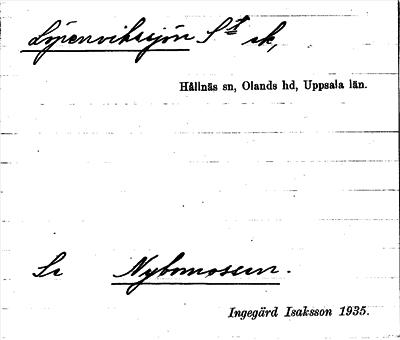 Löpenvikssjön Sst sk,
Hållnäs sn, Olands hd, Uppsala län.
Se Nybomossen.
Ingegärd Isaksson 1935.